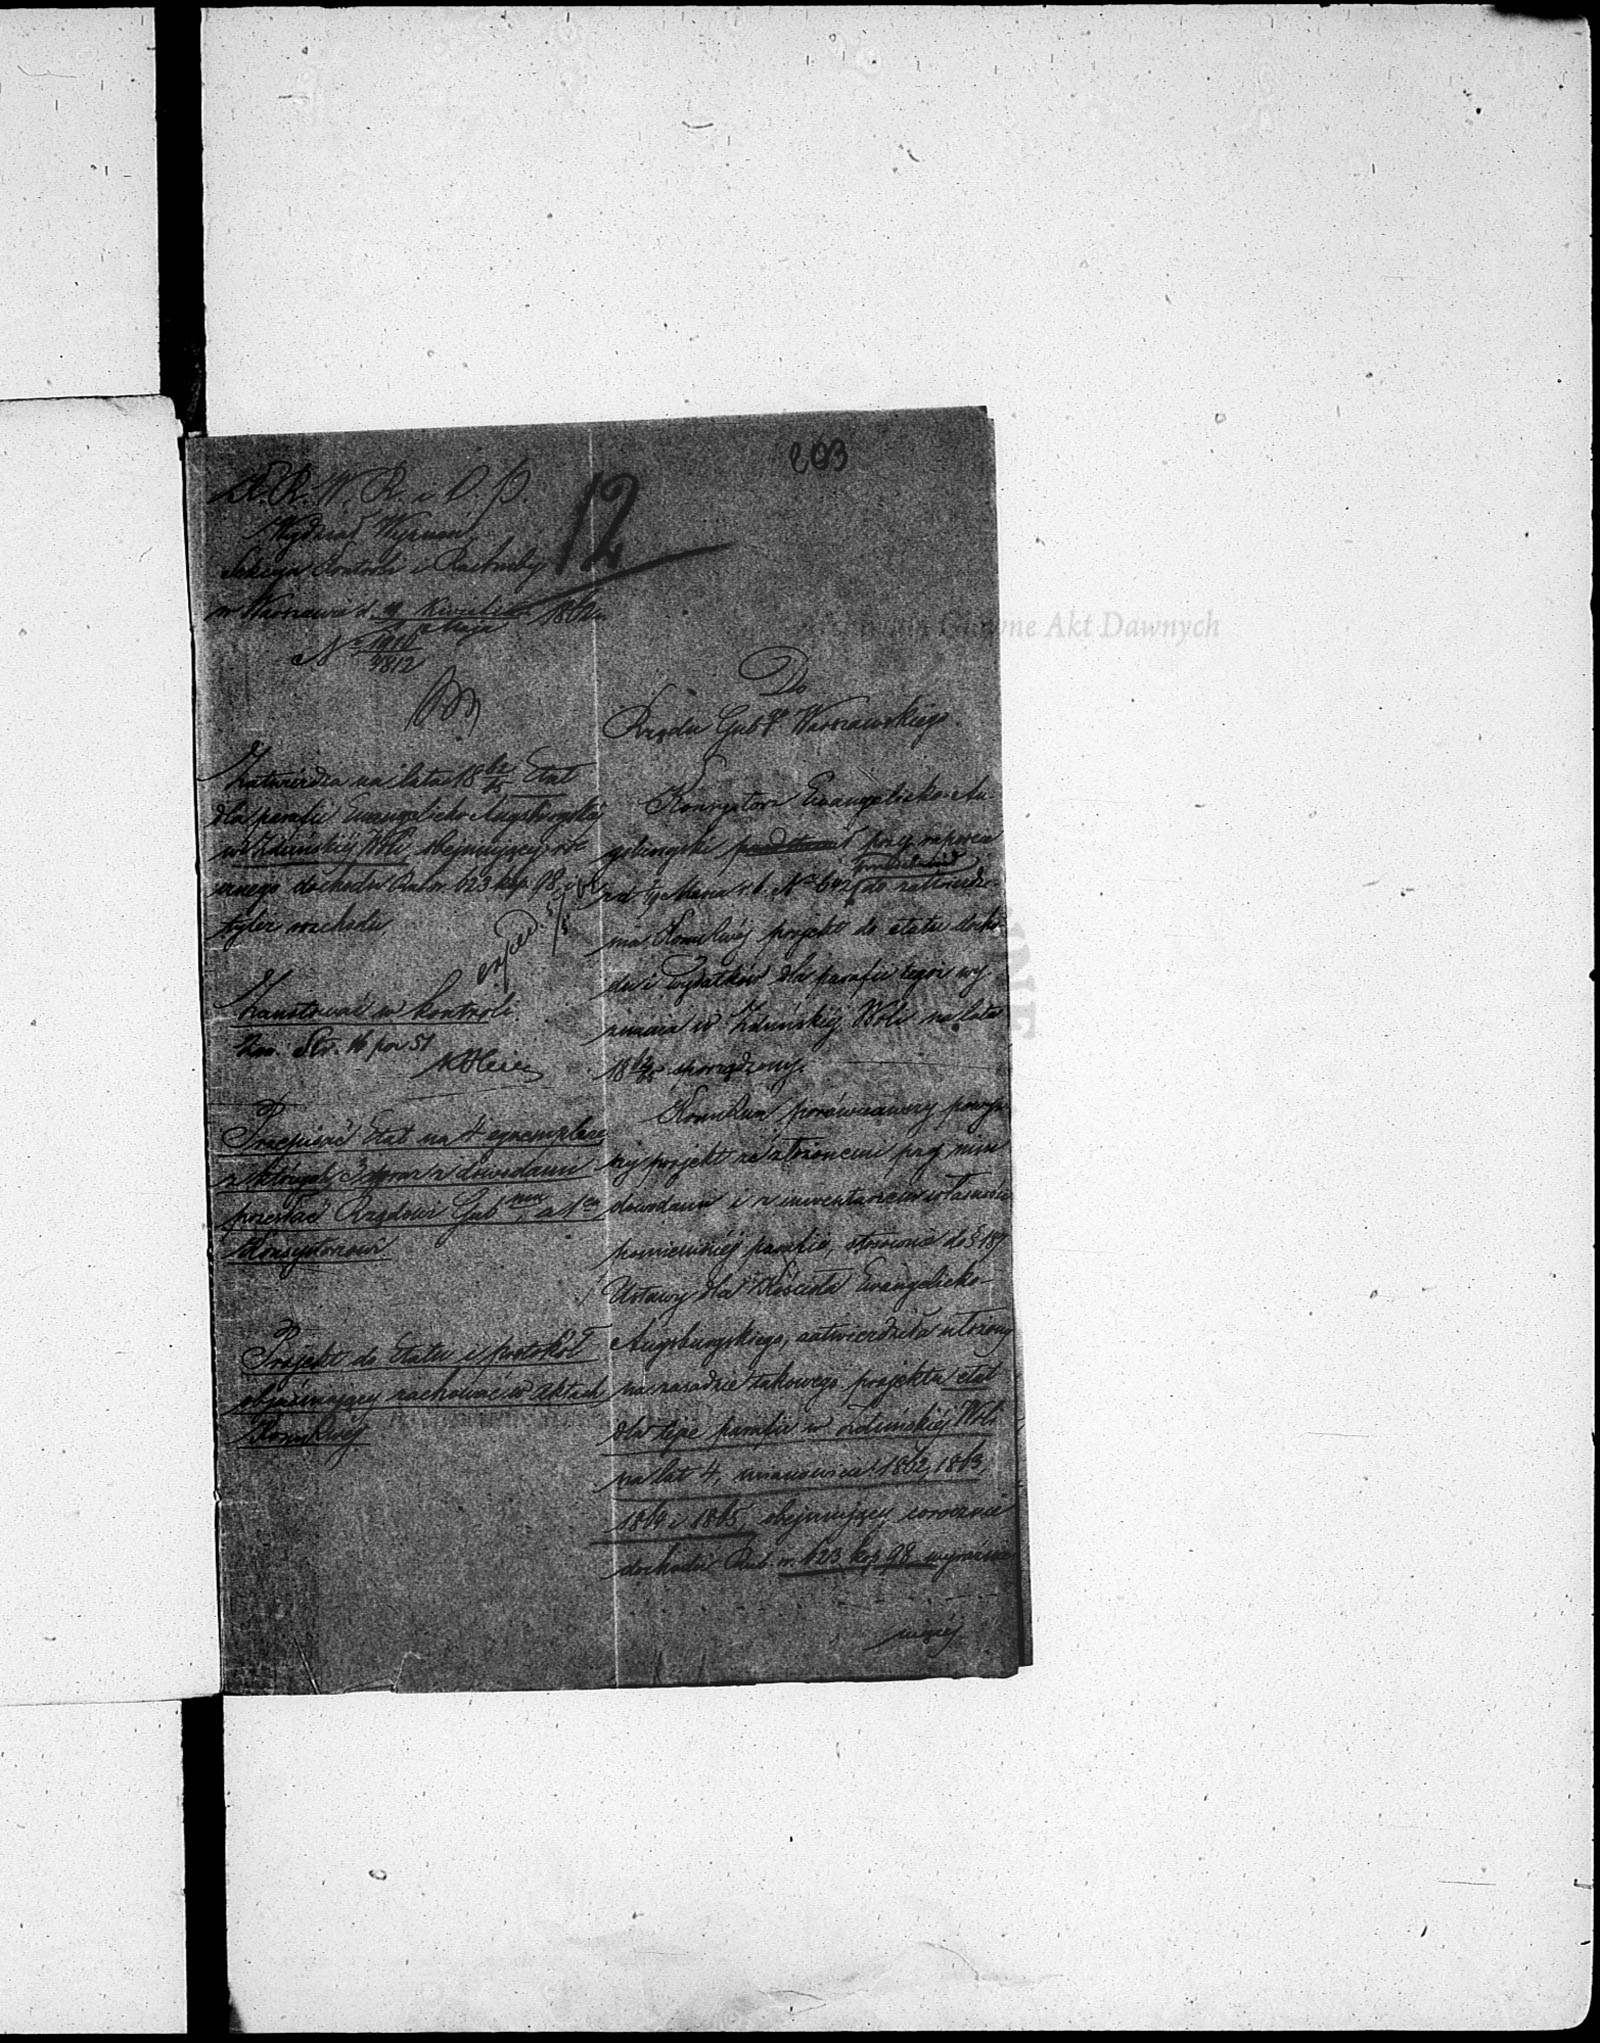 203
12
K. R. W. R. i O. P.
Wydział Wyznań
Sekcya Kontroli i Rachuby
w Warszawie d. Kwietnia 1862 r.
Maja
N° 1916
4812
Zatwierdza na lata 18 62/65 Etat
dla parafii Ewangelicko Augsburgskiej
w Zduńskiéj Woli obejmujący
dochodu Rubsr. 623 kop. 98, i
tyleż rozchodu
exped. 5/5
Zanotować w kontroli
Zan. Str. 16 poz 51
Przepisać Etat na 4 egzemplarze
z których 3 wraz z dowodami
przesłać Rządowi Gub a 1en
Konsystorzowi
Projekt do Etatu i protokół
objaśniający zachować w Aktach
Kom Rwéj
Do
Rządu Gubgo Warszawskiego.
Konsystorz Ewangelicko-Au-
gsburgski przedstawił przy raporcie
przedstawił
z d. Marca r. b. N° 642 do zatwierdze-
nia Kom Rwéj projekt do etatu docho-
du i wydatków dla parafii tegoż wy-
znania w Zduńskiéj Woli na lata
18 62/65 sporządzony.
Kom Rwa porównawszy powyż-
szy projekt ze złożonemi przy nim
dowodami i z inwentarzem własności
pomienionéj parafii, stosownie do § 187
Ustawy dla Kościoła Ewangelicko-
Augsburgskiego, zatwierdziła ułożony
na zasadzie takowego projektu etat
dla tejże parafii w Zduńskiéj Woli
na lat 4, mianowicie: 1862, 1863,
1864 i 1865, obejmujący corocznie
dochodu Rub sr. 623 kop 98 wyraźnie